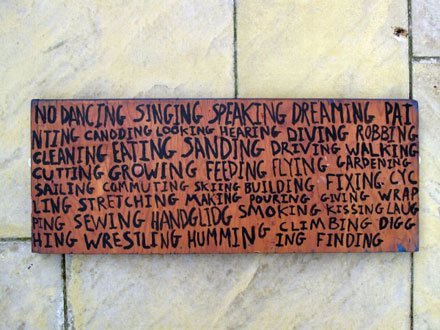 NO DANCING SINGING SPEAKING DREAMING PAI
NTING CANODDING LOOKING HEARING DIVING ROBBING
CLEANING EATING SANDING DRIVING WALKING
CUTTING GROWING FEEDING FLYING GARDENING
SAILING COMMUTING SKIING BUILDING FIXING CYC
LING STRETCHING MAKING POURING GIVING WRAP
PING SEWING HANDGLIDG SMOKING KISSING LAUG
HING WRESTLING HUMMING CLIMBING DIGG
ING FINDING